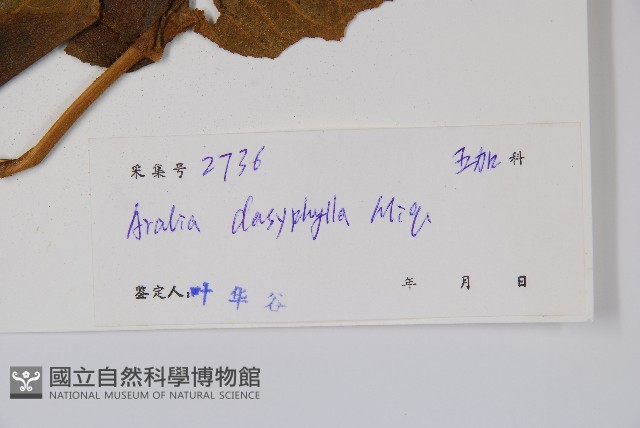 采集号 2736 五加 科
Aralia dasyphylla Miq.
鉴定人: 叶华谷 年 月 日
國立自然科學博物館
NATIONAL MUSEUM OF NATURAL SCIENCE